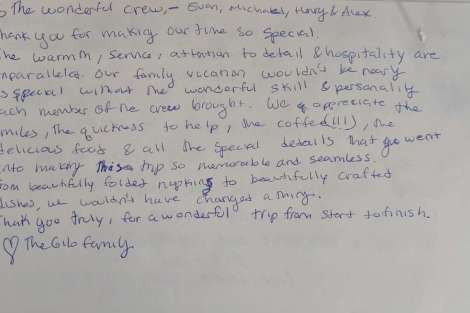 The wonderful crew,- Evan, Michael, Henry & Alex
Thank you for making our time so special.
The warmth, service, attention to detail & hospitality are
unparalleled. Our family vacation wouldn't be nearly
as special without the wonderful skill & personality
each member of the crew brought. We appreciate the
smiles, the quickness to help, the coffee(!!!), the
delicious food & all the special details that went
into making this trip so memorable and seamless.
From beautifully folded napkins to beautifully crafted
dishes, we wouldn't have changed a thing.
Thank you truly, for a wonderful trip from start to finish.
♡ The family